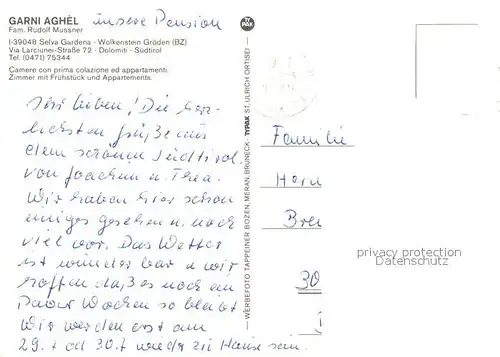 GARNI AGHÈL
unsere Pension
Fam. Rudolf Mussner
I-39048 Selva Gardena - Wolkenstein Gröden (BZ)
Via Larciunei-Straße 72 - Dolomiti - Südtirol
Tel. (0471) 75344
Camere con prima colazione ed appartamenti.
Zimmer mit Frühstück und Appartements.
Ihr Lieben! Die herz-
lichsten Grüße aus
dem schönen Südtirol
von Joachim u. Thea.
Wir haben hier schon
einiges gesehen u. noch
viel vor. Das Wetter
ist wunderbar u wir
hoffen daß es noch ein
Paar Wochen so bleibt
Wir werden erst am
29. od 30.7 wieder zu Hause sein.
TYPAK
WERBEFOTO TAPPEINER BOZEN, MERAN, BRUNECK - TYPAK ST. ULRICH ORTISEI
Familie
Horn
Bre
30
privacy protection
Datenschutz